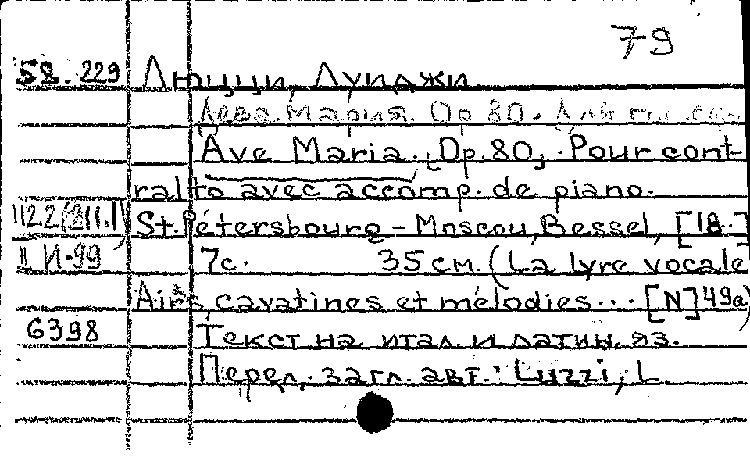 79
52.229 Люцци, Луиджи
Дева Мария. Op 80.
Ave Maria. Op. 80. Pour cont-
ralto avec accomp. de piano.
St. Pétersbourg - Moscou, Bessel, [18.]
II И-99 7с. 35 см. (La lyre vocale
Airs, cavatines et mélodies... [N] 49a)
6398 Текст на итал. и латин. яз.
Перел. загл. авт.: Luzzi, L.